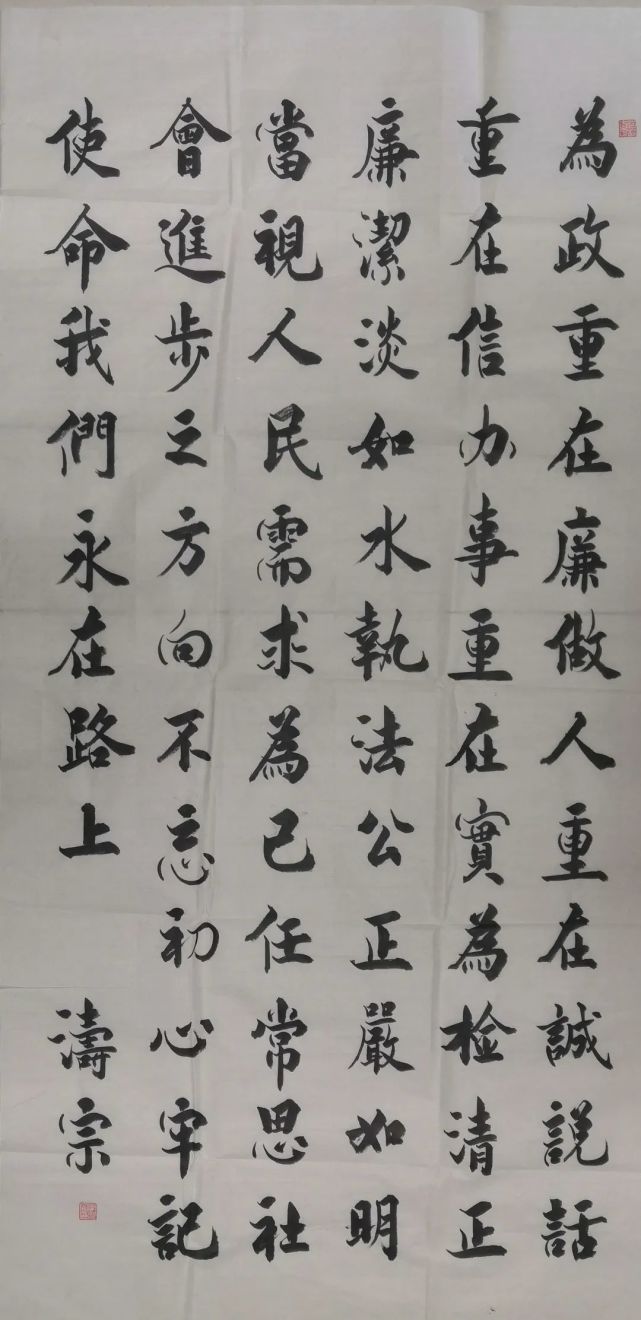 為政重在廉做人重在誠説話
重在信办事重在實為检清正
廉潔淡如水執法公正嚴如明
當視人民需求為己任常思社
會進步之方向不忘初心牢記
使命我們永在路上
濤宗